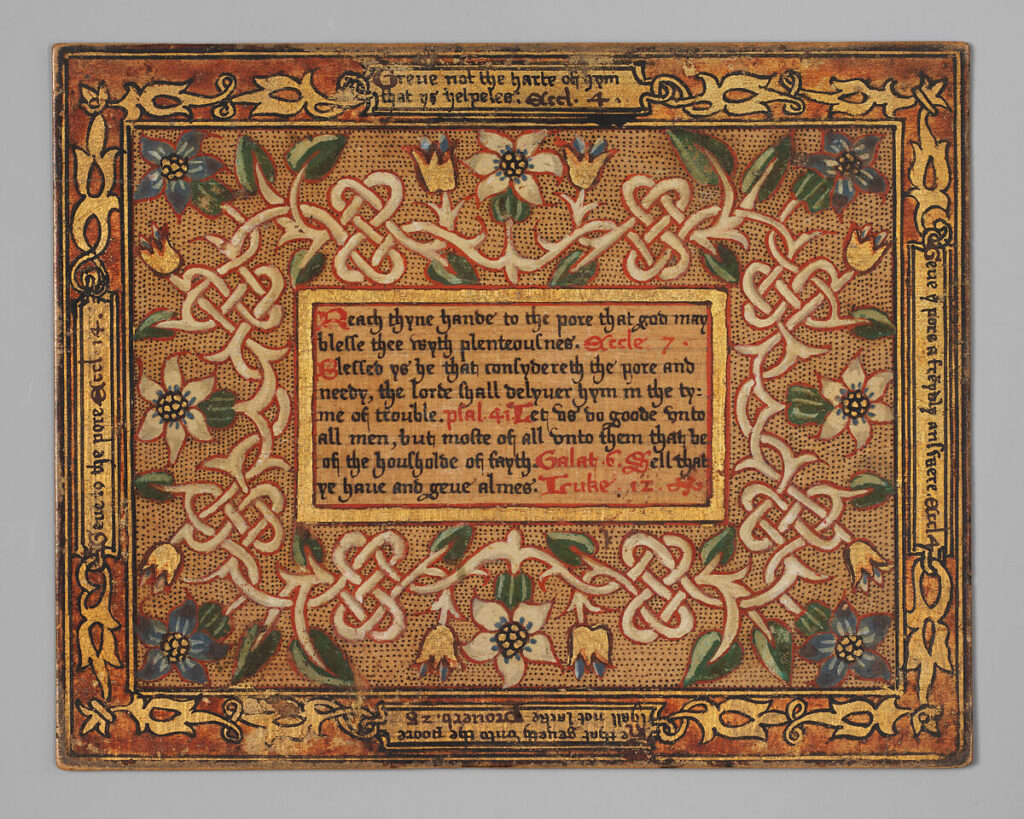 Greue not the harte of hym
that ys helpeles. Eccl. 4.
Reach thyne hande to the pore that god may
blesse thee wyth plenteousnes. Eccle 7.
Blessed ys he that consydereth the pore and
needy, the lorde shall delyuer hym in the ty:
me of trouble. psal. 41 Let vs do goode vnto
all men, but moste of all vnto them that be
of the housholde of fayth. Galat. 6. Sell that
ye haue and geue almes. Luke 12.
Geue y pore a frendly answere. Eccl.
He that geueth vnto the poore
shall not lacke Prouerb. 28
Geue to the pore Eccl 14.